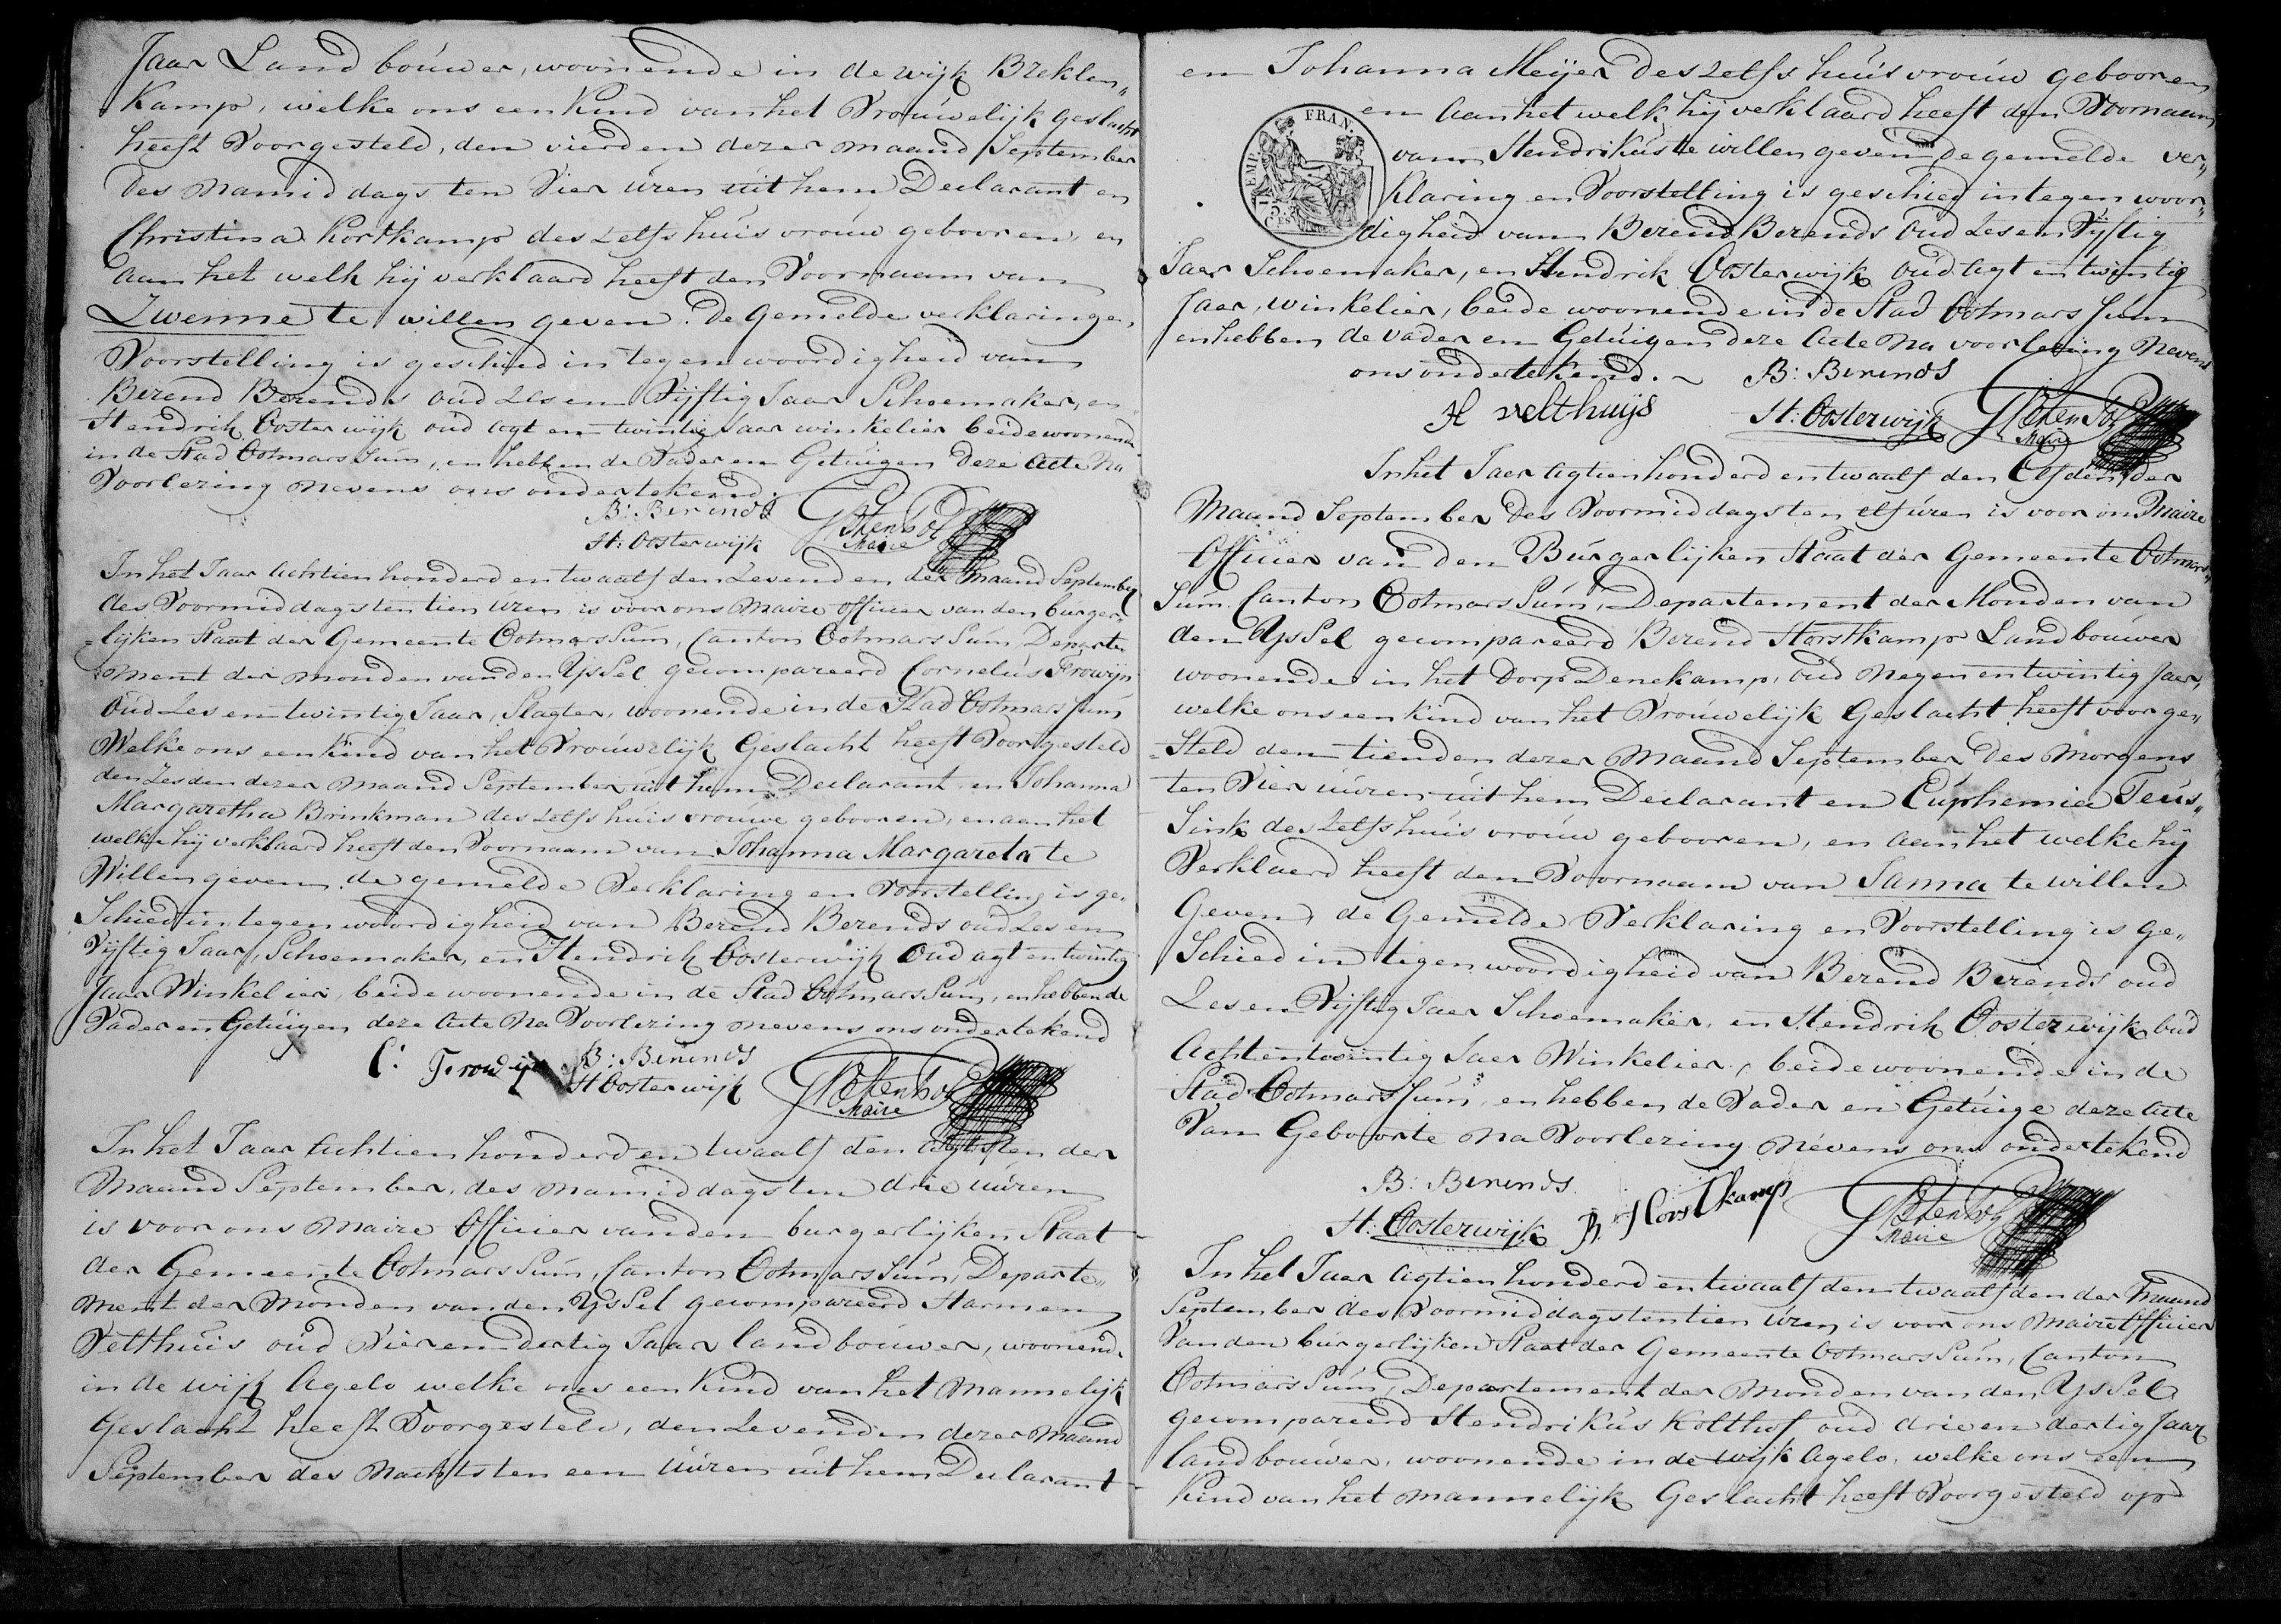 Jaar Landbouwer, woonende in de wijk Breklen„
kamp, welke ons een Kind van het Vrouwelijk geslacht
heeft Voorgesteld, den vierden dezer maand September
des namiddags ten Vier uren uit hem Declarant en
Christina Kortkamp deszelfs huisvrouw gebooren, en
aan het welk hij verklaard heeft den Voornaam van
Zwenne te willen geven. De Gemelde verklaring en
Voorstelling is geschied in tegenwoordigheid van
Berend Berends oud Zes en Vijftig Jaar Schoemaker, en
Hendrik Oosterwijk oud agt en twintig Jaar winkelier beide woonende
in de Stad Ootmarssum, en hebben de Vader en Getuigen deze Acte Na
Voorlezing nevens ons ondertekend.
B: Berends
H: Oosterwijk
Maire
In het Jaar Achtien honderd en twaalf den Zevenden der Maand September
des Voormiddags ten tien uren is voor ons Maire officier van den burger„
lijken Staat der Gemeente Ootmarssum, Canton Ootmarssum, Departe„
ment der monden van den Yssel gecompareerd Cornelus Frowijn
oud Zes en twintig Jaar, Slagter, woonende in de Stad Ootmarssum
Welke ons een kind van het Vrouwelijk Geslacht heeft Voorgesteld
den Zesden dezer maand September uit hem Declarant en Johanna
Margaretha Brinkman deszelfs huisvrouwe gebooren, en aan het
welke hij verklaard heeft den Voornaam van Johanna Margareta te
Willen geven, de gemelde Verklaring en Voorstelling is ge„
Schied in tegenwoordigheid van Berend Berends oud Zes en
Vijftig Jaar, Schoemaker, en Hendrik Oosterwijk Oud agt en twintig
Jaar Winkelier, beide woonende in de Stad Ootmarssum, en hebben de
Vader en Getuigen deze Acte Na Voorlezing nevens ons ondertekend
C: Frowijn B: Berends
H Oosterwijk
Maire
In het Jaar Achtien honderd en twaalf den agtsten der
Maand September, des namiddags ten drie uuren
is voor ons Maire Officier van den burgerlijken Staat
der Gemeente Ootmarssum, Canton Ootmarssum, Departe„
ment der Monden van den Yssel gecompareerd Harmen
Velthuis oud Vier en dertig Jaar landbouwer, woonend
in de wijk Agelo welke ons een Kind van het Mannelijk
Geslacht heeft Voorgesteld, den Zevenden dezer Maand
September des Nachts ten een uuren uit hem Declarant
en Johanna Meijer deszelfs huisvrouw gebooren
en aan het welk hij verklaard heeft den Voornaam
van Hendrikus te willen geven de gemelde ver„
klaring en Voorstelling is geschied in tegenwoor„
digheid van Berend Berends Oud Zes en Vijftig
EMP. FRAN.
75
Jaer Schoemaker, en Hendrik Oosterwijk oud agt en twintig
Jaer, winkelier, beide woonende in de Stad Ootmarssum
en hebben de vader en Getuigen deze Acte Na voorlezing Nevens
ons ondertekend. B: Berends
H velthuijs H: Oosterwijk
Maire
In het Jaer Agtienhonderd en twaalf den Elfden der
Maand September des Voormiddags ten elf uren is voor ons Maire
Officier van den Burgerlijken Staat der Gemeente Ootmars„
sum Canton Ootmarssum, Departement der Monden van
den Yssel gecompareerd Berend Horstkamp Landbouwer
woonende in het Dorp Denekamp, oud Negen en twintig Jaer,
welke ons een kind van het Vrouwelijk Geslacht heeft voorge„
steld den tienden dezer Maand September des Morgens
ten Vier uuren uit hem Declarant en Euphemia Teus„
sink deszelfs huisvrouw gebooren, en aan het welke hij
Verklaerd heeft den Voornaam van Janna te willen
Geven, de Gemelde Verklaring en Voorstelling is ge„
Schied in tegenwoordigheid van Berend Berends oud
Zes en Vijftig Jaer Schoemaker, en Hendrik Oosterwijk oud
Achtentwintig Jaer Winkelier, beide woonende in de
Stad Ootmarssum, en hebben de Vader en Getuige deze Acte
Van Geboorte na Voorlezing nevens ons ondertekend
B: Berends
H: Oosterwijk B. Horstkamp
Maire
In het Jaer Agtien honderd en twaalf den twaalfden der Maand
September des Voormiddags ten tien uren is voor ons Maire Officier
Van den burgerlijken Staat der Gemeente Ootmarssum, Canton
Ootmarssum, Departement der Monden van den Yssel
gecompareerd Hendrikus Kolthof oud drie en dertig Jaar
landbouwer, woonende in de wijk Agelo, welke ons een
Kind van het mannelijk Geslacht heeft Voorgesteld op